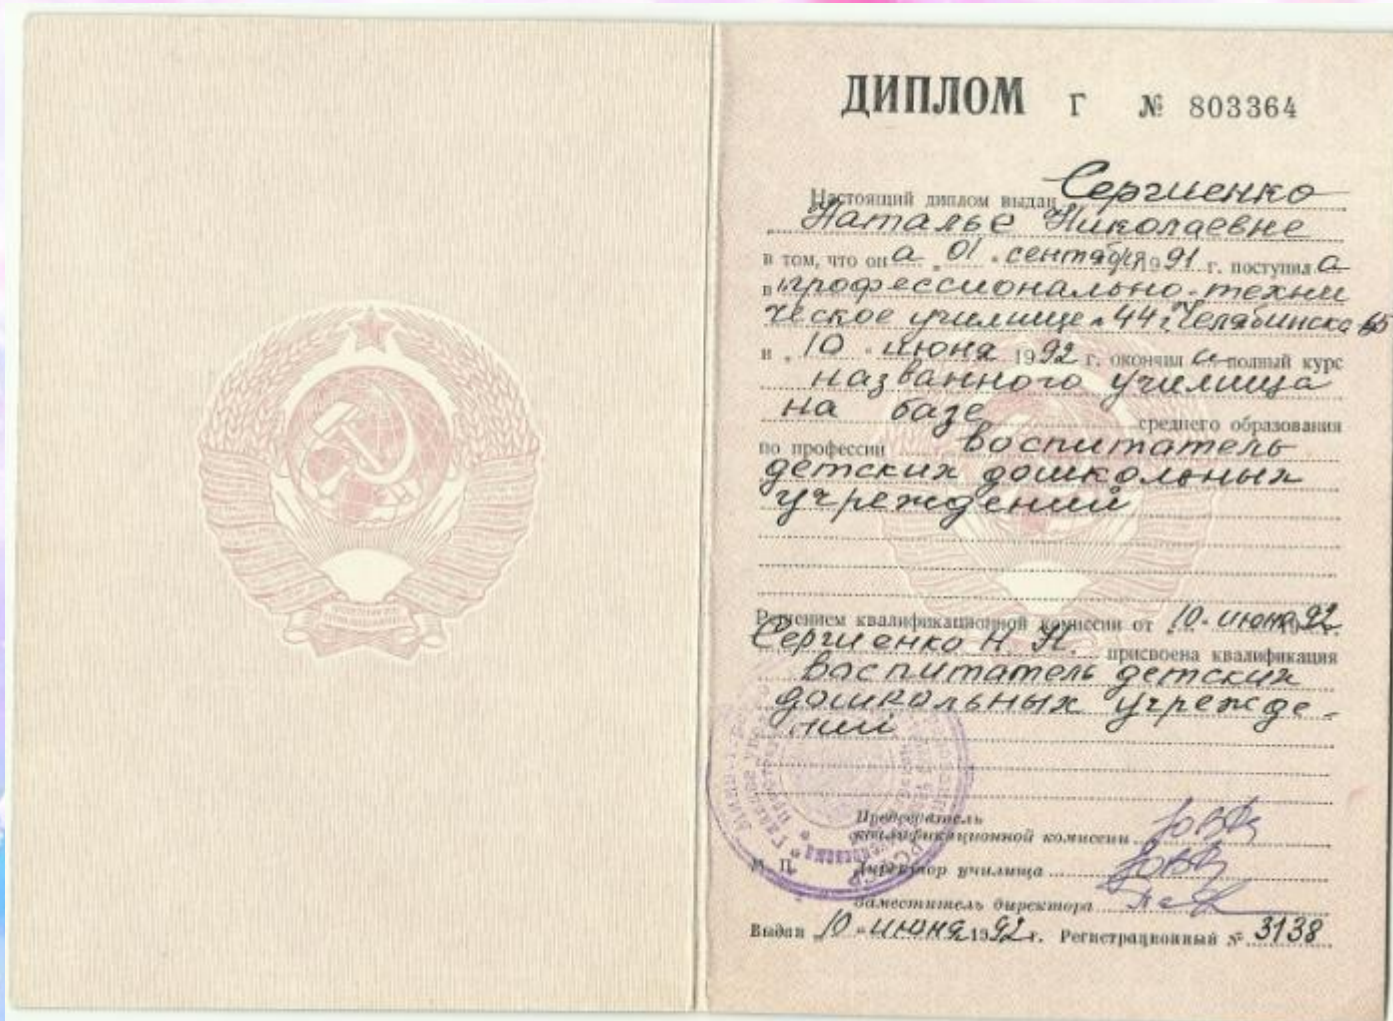 ДИПЛОМ Г № 803364
Настоящий диплом выдан Сергиенко
Наталье Николаевне
в том, что он а „ 01 " сентября 1991 г. поступил а
в профессионально-техни
ческое училище № 44 г. Челябинска 65
и „ 10 " июня 1992 г. окончил а полный курс
названного училища
на базе среднего образования
по профессии воспитатель
детских дошкольных
учреждений
Решением квалификационной комиссии от 10 июня 1992 г.
Сергиенко Н. Н. присвоена квалификация
воспитатель детских
дошкольных учрежде-
ний
Председатель
квалификационной комиссии
М. П. Директор училища
Заместитель директора
Выдан „ 10 " июня 1992 г. Регистрационный № 3138